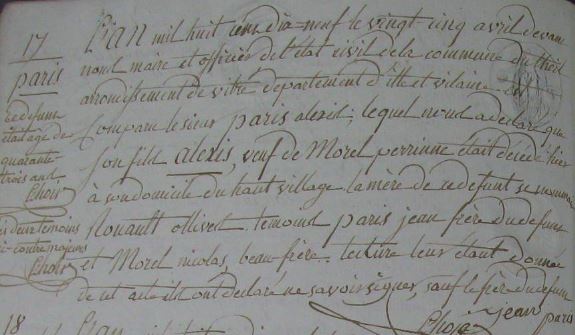 17
paris
ce defunt
était agé de
quarante
trois ans
Choix
les deux temoins
ci-contre majeurs
Choix
L'an mil huit cent dix=neuf le vingt cinq avril devant
nous maire et officier de l'état civil de la commune du theil
arrondissement de vitré departement d'ille et vilaine est
comparu le sieur paris alexis, lequel nous a declaré que
son fils alexis, veuf de Morel perrinne était décédé hier
à son domicile du haut village la mère de ce defunt se nommait
Rouault ollive. temoins paris jean frère du defunt
et Morel nicolas, beau-frère. lecture leur étant donnée
de cet acte ils ont declaré ne savoir signer, sauf le frère du defunt
Choix jean paris
18 L'an mil huit